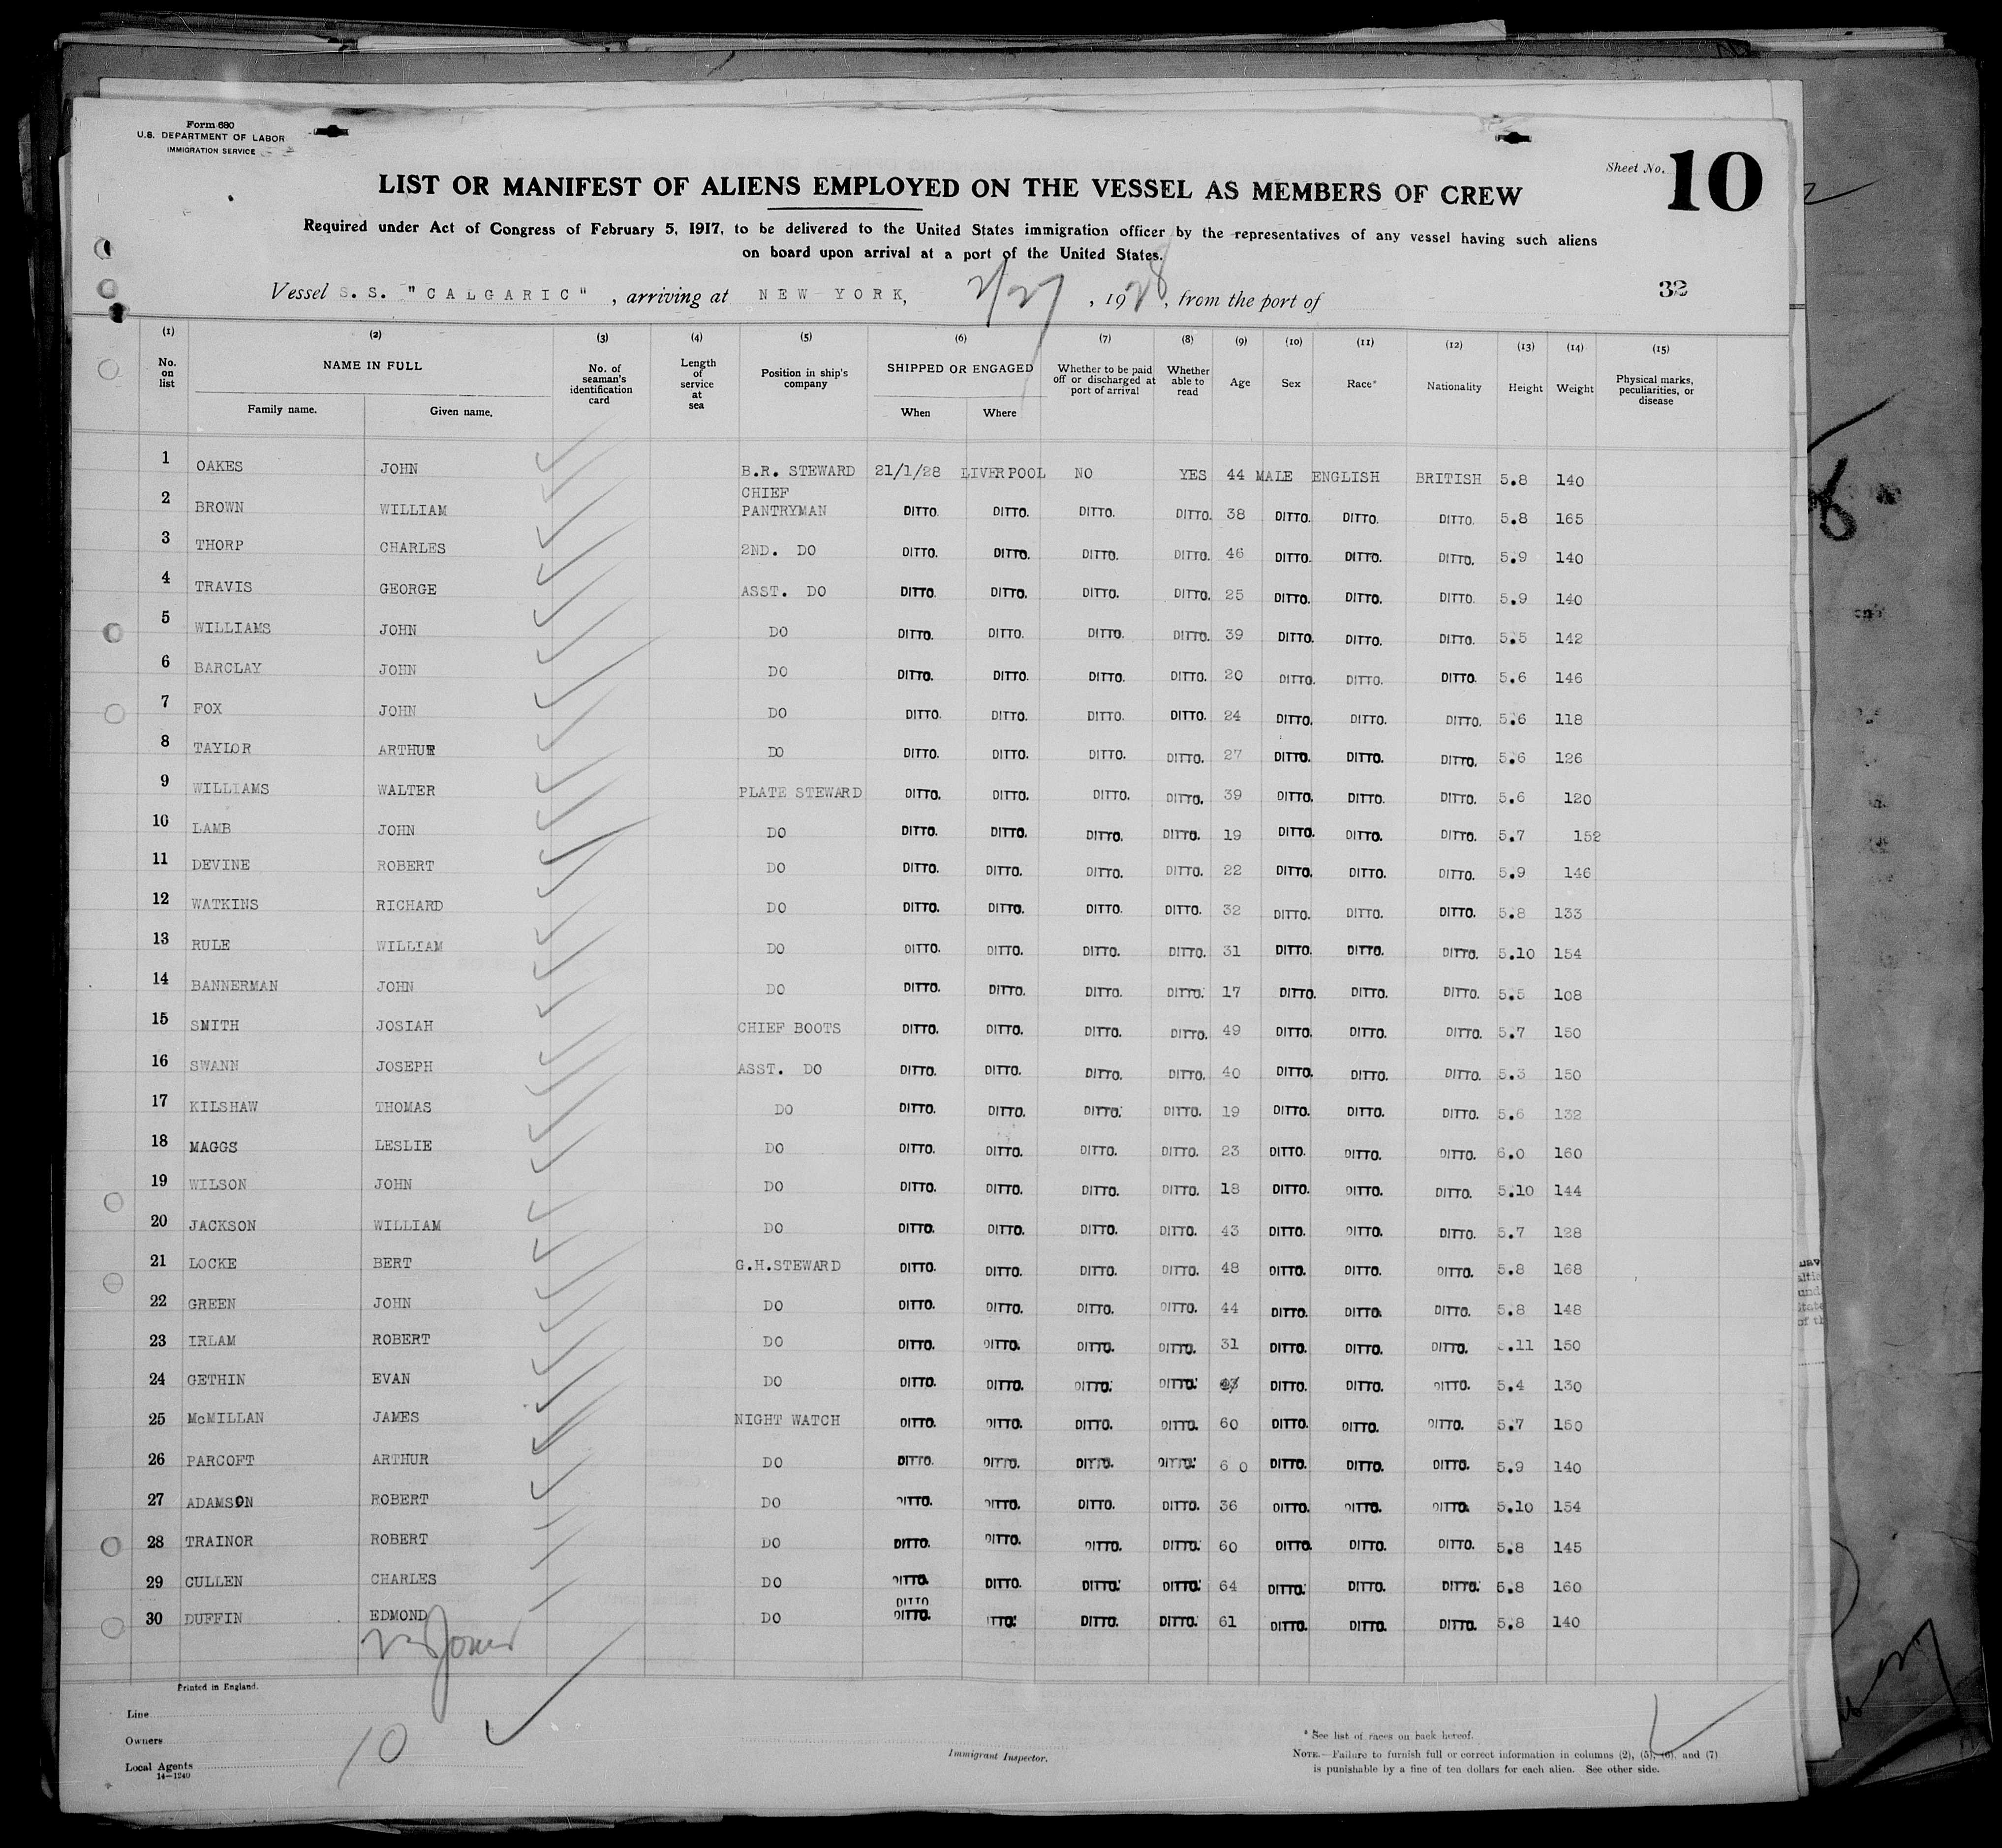 Form 680
U.S. DEPARTMENT OF LABOR
IMMIGRATION SERVICE
Sheet No. 10
LIST OR MANIFEST OF ALIENS EMPLOYED ON THE VESSEL AS MEMBERS OF CREW
Required under Act of Congress of February 5, 1917, to be delivered to the United States immigration officer by the representatives of any vessel having such aliens
on board upon arrival at a port of the United States.
Vessel S.S. "CALGARIC", arriving at NEW YORK, 2/27, 1928, from the port of
32
(1) (2) (3) (4) (5) (6) (7) (8) (9) (10) (11) (12) (13) (14) (15)
No. on list NAME IN FULL Family name. Given name. No. of seaman's identification card Length of service at sea Position in ship's company SHIPPED OR ENGAGED When Where Whether to be paid off or discharged at port of arrival Whether able to read Age Sex Race* Nationality Height Weight Physical marks, peculiarities, or disease
1 OAKES JOHN B.R. STEWARD 21/1/28 LIVERPOOL NO YES 44 MALE ENGLISH BRITISH 5.8 140
2 BROWN WILLIAM CHIEF PANTRYMAN DITTO. DITTO. DITTO. DITTO. 38 DITTO. DITTO. DITTO. 5.8 165
3 THORP CHARLES 2ND. DO DITTO. DITTO. DITTO. DITTO. 46 DITTO. DITTO. DITTO. 5.9 140
4 TRAVIS GEORGE ASST. DO DITTO. DITTO. DITTO. DITTO. 25 DITTO. DITTO. DITTO. 5.9 140
5 WILLIAMS JOHN DO DITTO. DITTO. DITTO. DITTO. 39 DITTO. DITTO. DITTO. 5.5 142
6 BARCLAY JOHN DO DITTO. DITTO. DITTO. DITTO. 20 DITTO. DITTO. DITTO. 5.6 146
7 FOX JOHN DO DITTO. DITTO. DITTO. DITTO. 24 DITTO. DITTO. DITTO. 5.6 118
8 TAYLOR ARTHUR DO DITTO. DITTO. DITTO. DITTO. 27 DITTO. DITTO. DITTO. 5.6 126
9 WILLIAMS WALTER PLATE STEWARD DITTO. DITTO. DITTO. DITTO. 39 DITTO. DITTO. DITTO. 5.6 120
10 LAMB JOHN DO DITTO. DITTO. DITTO. DITTO. 19 DITTO. DITTO. DITTO. 5.7 152
11 DEVINE ROBERT DO DITTO. DITTO. DITTO. DITTO. 22 DITTO. DITTO. DITTO. 5.9 146
12 WATKINS RICHARD DO DITTO. DITTO. DITTO. DITTO. 32 DITTO. DITTO. DITTO. 5.8 133
13 RULE WILLIAM DO DITTO. DITTO. DITTO. DITTO. 31 DITTO. DITTO. DITTO. 5.10 154
14 BANNERMAN JOHN DO DITTO. DITTO. DITTO. DITTO. 17 DITTO. DITTO. DITTO. 5.5 108
15 SMITH JOSIAH CHIEF BOOTS DITTO. DITTO. DITTO. DITTO. 49 DITTO. DITTO. DITTO. 5.7 150
16 SWANN JOSEPH ASST. DO DITTO. DITTO. DITTO. DITTO. 40 DITTO. DITTO. DITTO. 5.3 150
17 KILSHAW THOMAS DO DITTO. DITTO. DITTO. DITTO. 19 DITTO. DITTO. DITTO. 5.6 132
18 MAGGS LESLIE DO DITTO. DITTO. DITTO. DITTO. 23 DITTO. DITTO. DITTO. 6.0 160
19 WILSON JOHN DO DITTO. DITTO. DITTO. DITTO. 18 DITTO. DITTO. DITTO. 5.10 144
20 JACKSON WILLIAM DO DITTO. DITTO. DITTO. DITTO. 43 DITTO. DITTO. DITTO. 5.7 128
21 LOCKE BERT G.H.STEWARD DITTO. DITTO. DITTO. DITTO. 48 DITTO. DITTO. DITTO. 5.8 168
22 GREEN JOHN DO DITTO. DITTO. DITTO. DITTO. 44 DITTO. DITTO. DITTO. 5.8 148
23 IRLAM ROBERT DO DITTO. DITTO. DITTO. DITTO. 31 DITTO. DITTO. DITTO. .11 150
24 GETHIN EVAN DO DITTO. DITTO. DITTO. DITTO. DITTO. DITTO. DITTO. 5.4 130
25 McMILLAN JAMES NIGHT WATCH DITTO. DITTO. DITTO. DITTO. 60 DITTO. DITTO. DITTO. 5.7 150
26 PARCOFT ARTHUR DO DITTO. DITTO. DITTO. DITTO. 60 DITTO. DITTO. DITTO. 5.9 140
27 ADAMSON ROBERT DO DITTO. DITTO. DITTO. DITTO. 36 DITTO. DITTO. DITTO. 5.10 154
28 TRAINOR ROBERT DO DITTO. DITTO. DITTO. DITTO. 60 DITTO. DITTO. DITTO. 5.8 145
29 CULLEN CHARLES DO DITTO. DITTO. DITTO. DITTO. 64 DITTO. DITTO. DITTO. 5.8 160
30 DUFFIN EDMOND DO DITTO DITTO. DITTO. DITTO. DITTO. 61 DITTO. DITTO. DITTO. 5.8 140
Jones
Printed in England.
Line
Owners
Local Agents
14-1240
10
Immigrant Inspector.
* See list of races on back hereof.
NOTE.—Failure to furnish full or correct information in columns (2), (5), (6), and (7)
is punishable by a fine of ten dollars for each alien. See other side.